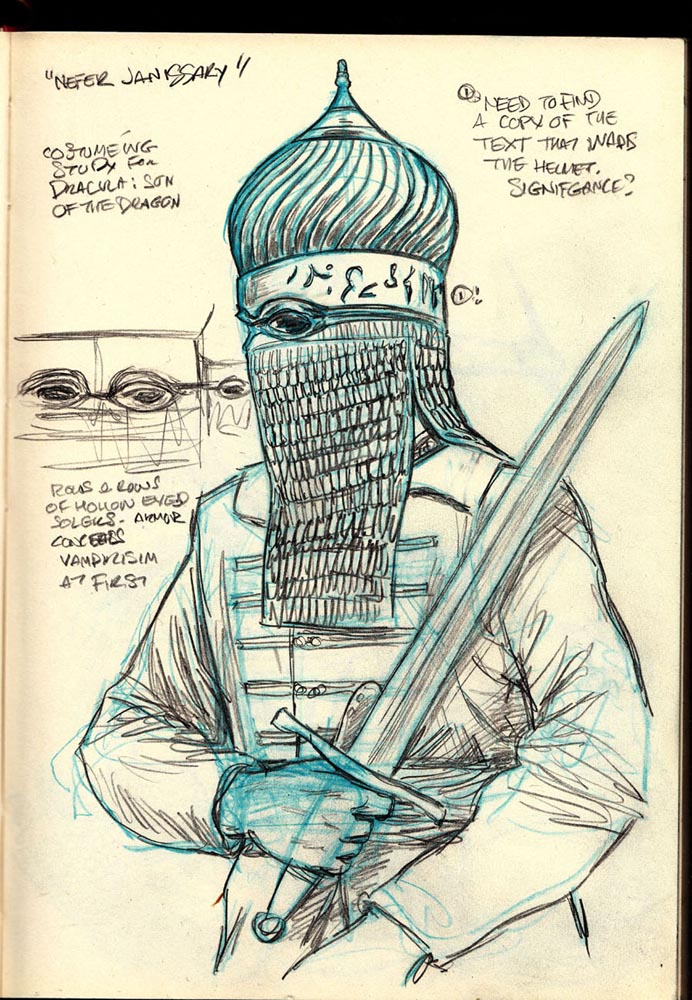 "NEFER JANISSARY"
COSTUMEING
STUDY FOR
DRACULA: SON
OF THE DRAGON
① NEED TO FIND
A COPY OF THE
TEXT THAT WARDS
THE HELMET.
SIGNIFGANCE?
①!
ROWS & ROWS
OF HOLLOW EYED
SOLERS - ARMOR
CONCEALS
VAMPYRISIM
AT FIRST